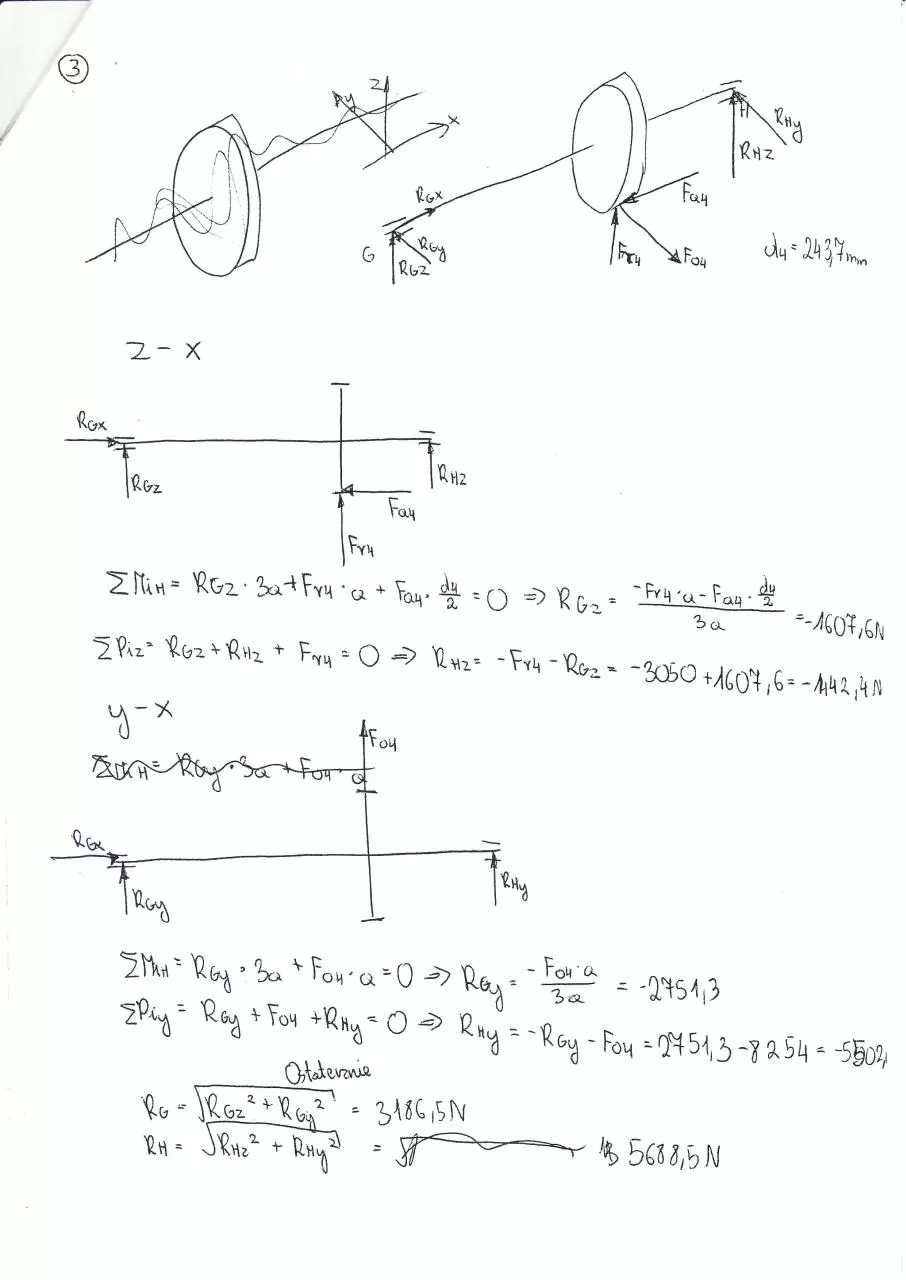 3
z
y
x
H
RHy
RHz
RGx
Fa4
G
RGy
RGz
Fr4
Fo4
d4 = 243,7mm
z - x
RGx
RGz
RHz
Fa4
Fr4
ΣMiH = RGz · 3a + Fr4 · a + Fa4 · d4/2 = 0 => RGz = (-Fr4 · a - Fa4 · d4/2)/3a = -1607,6N
ΣPiz = RGz + RHz + Fr4 = 0 => RHz = -Fr4 - RGz = -3050 + 1607,6 = -1442,4 N
y - x
Fo4
ΣMiH = RGy · 3a + Fo4 · a
RGx
RGy
RHy
ΣMiH = RGy · 3a + Fo4 · a = 0 => RGy = (-Fo4 · a)/3a = -2751,3
ΣPiy = RGy + Fo4 + RHy = 0 => RHy = -RGy - Fo4 = 2751,3 - 8254 = -5502,
Ostatecznie
RG = √(RGz² + RGy²) = 3186,5N
RH = √(RHz² + RHy²) = 5688,5N